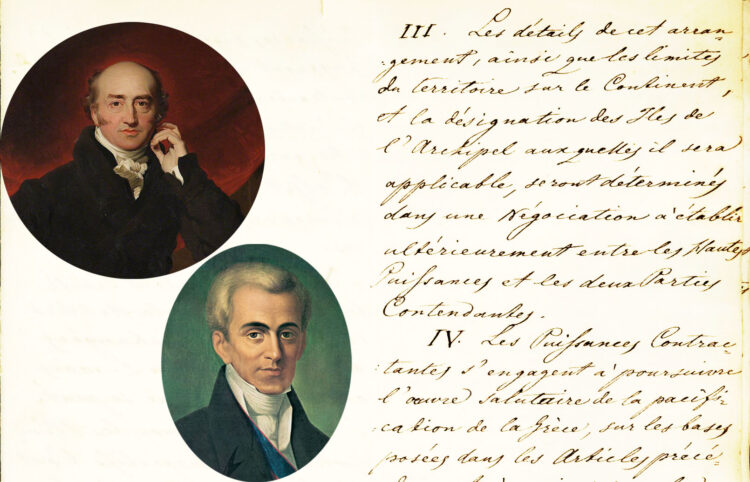 III. Les détails de cet arran-
gement, ainsi que les limites
du territoire sur le Continent,
et la désignation des Iles de
l'Archipel auxquelles il sera
applicable, seront déterminés
dans une Négociation à établir
ultérieurement entre les Hautes
Puissances et les deux Parties
Contendantes.
IV. Les Puissances Contrac-
tantes s'engagent à poursuivre
l'œuvre salutaire de la pacifi-
cation de la Grèce, sur les bases
posées dans les Articles précé-